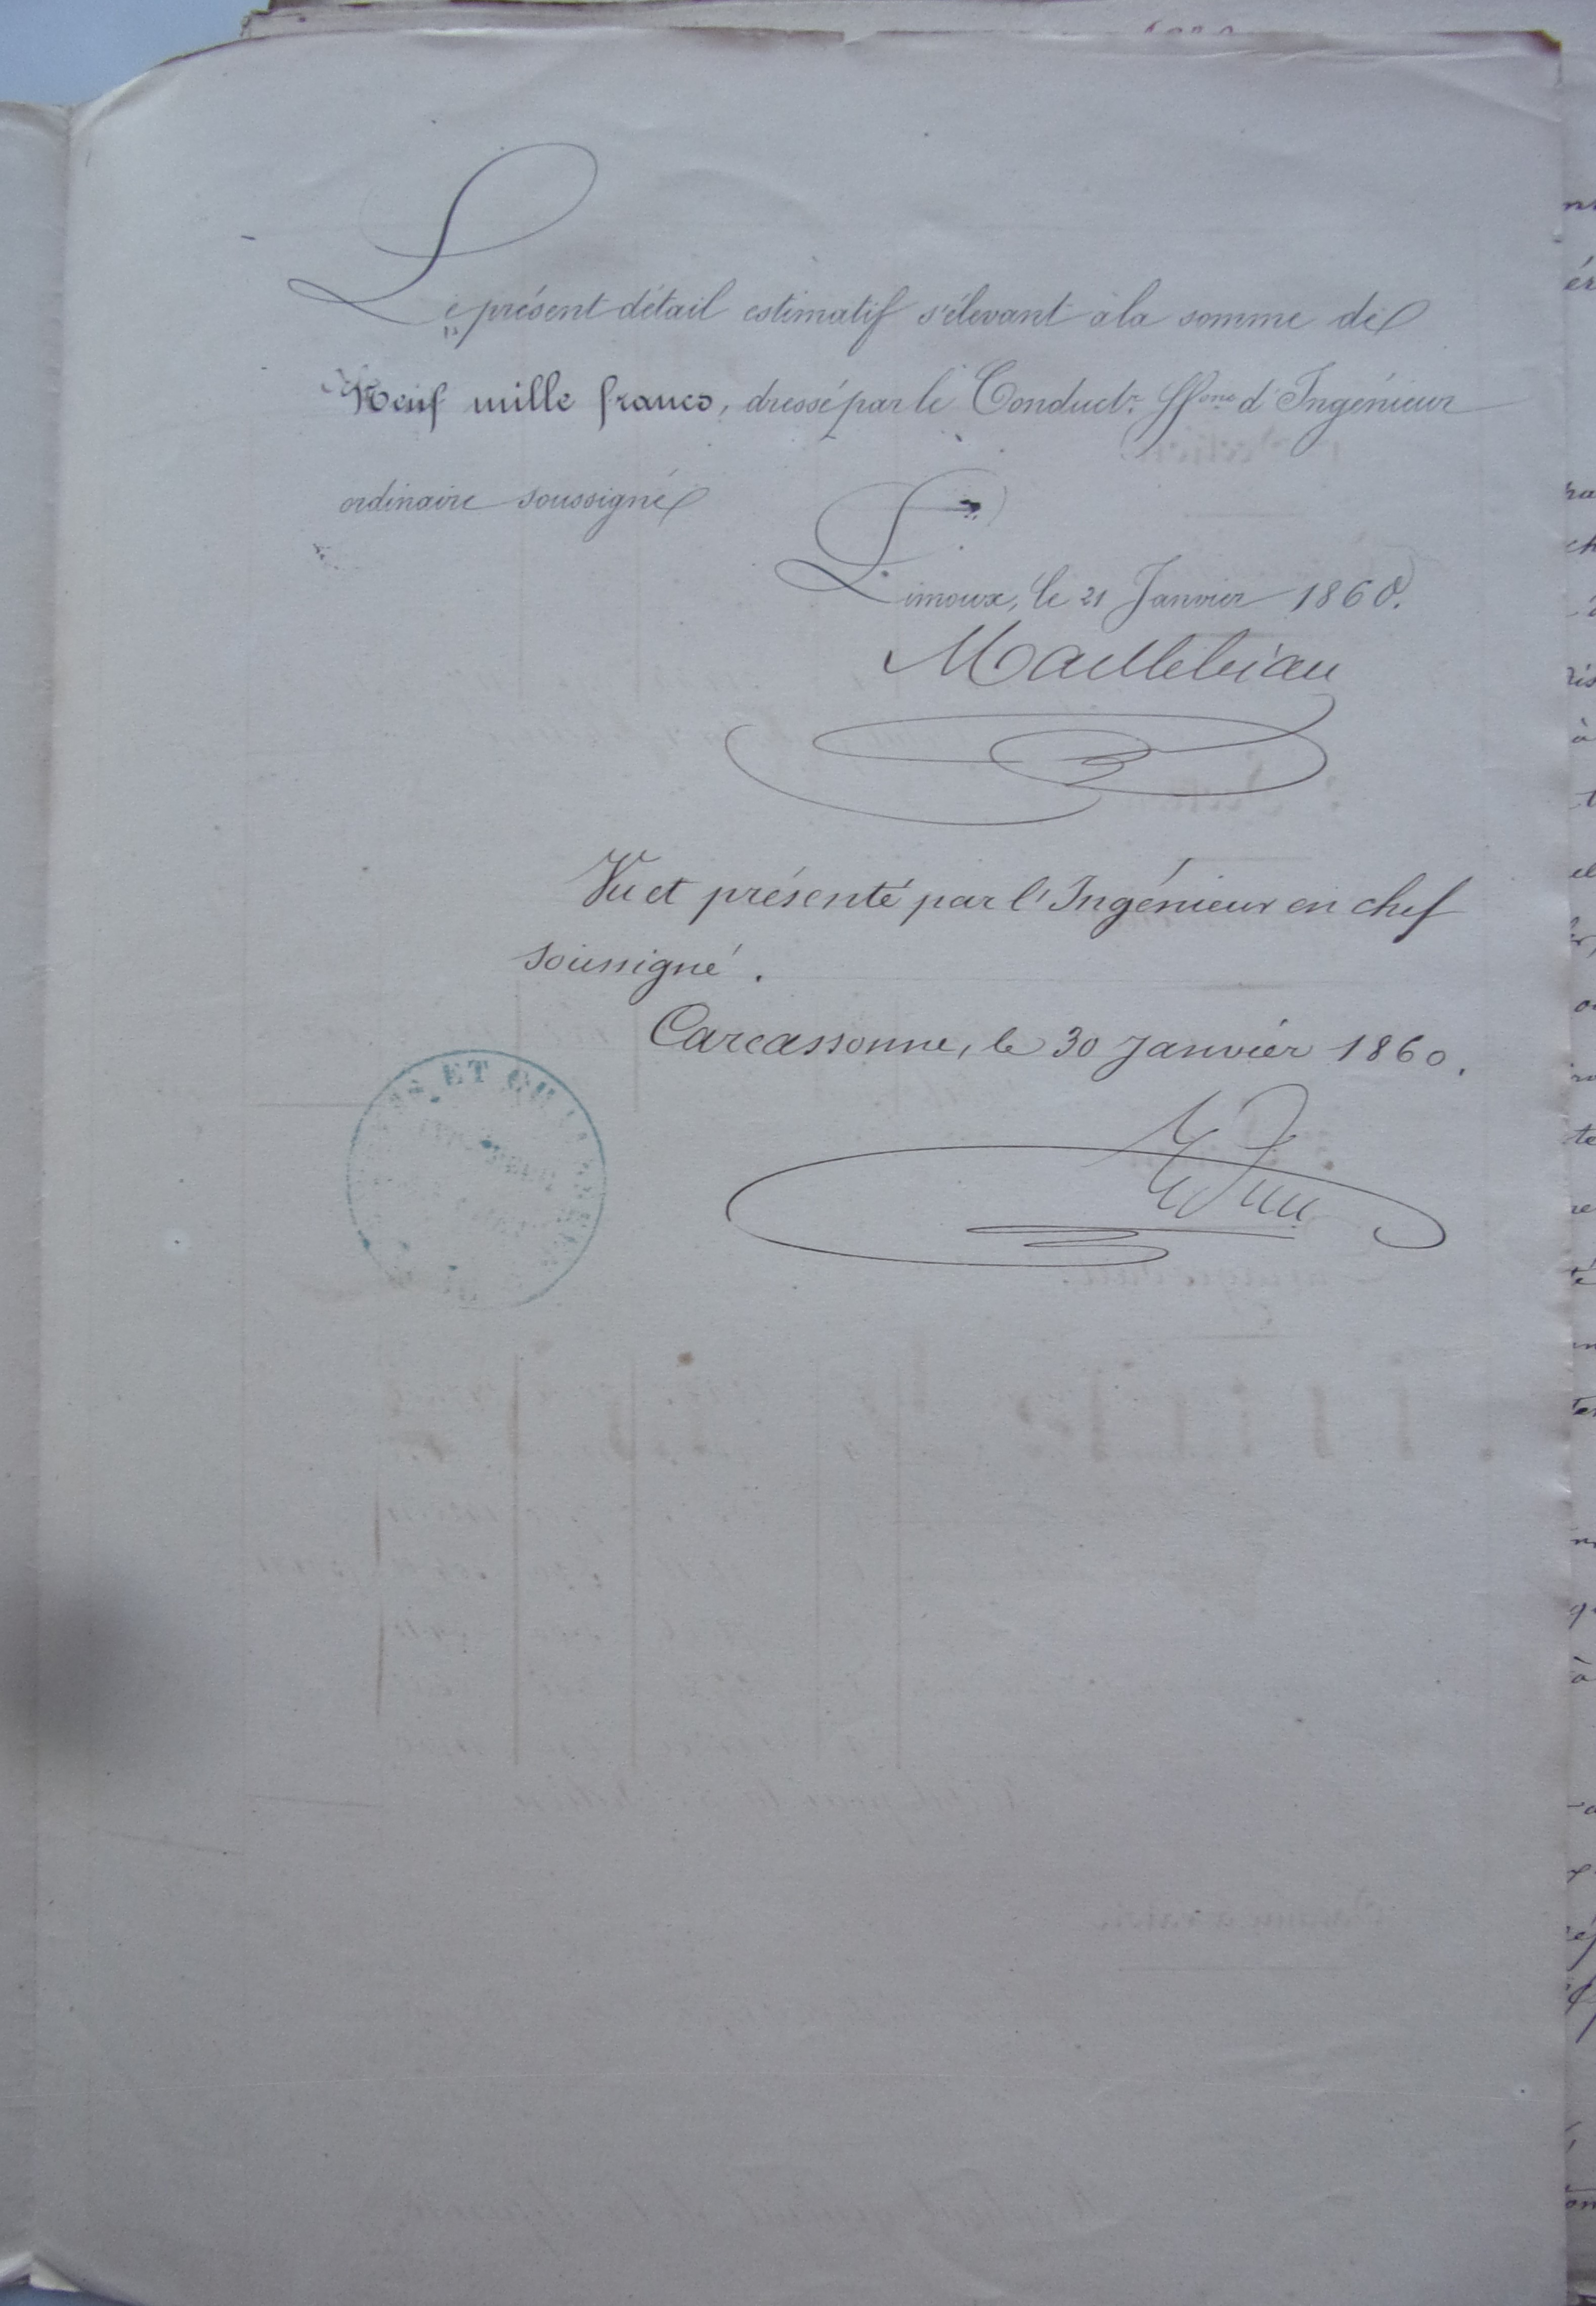 Le présent détail estimatif s'élevant à la somme de
Neuf mille francs, dressé par le Conductr. ffons d'Ingénieur
ordinaire soussigné
Limoux, le 21 Janvier 1860.
Maillebiau
Vu et présenté par l'Ingénieur en chef
soussigné.
Carcassonne, le 30 Janvier 1860.
ET CH